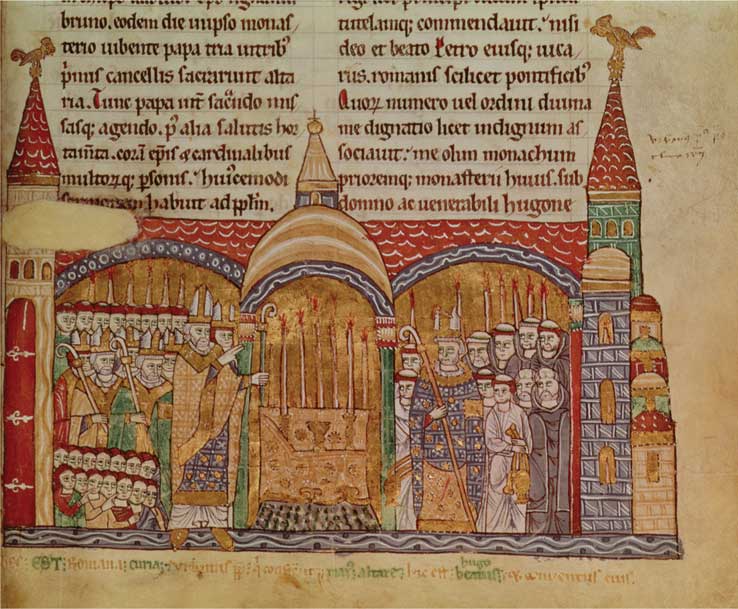 bruno. eodem die in ipso monas
terio iubente papa tria in tribꝰ
pͥmis cancellis sacrauerunt alta
ria. Tunc papa int̃ sac̃ndo mis
sasq; agendo. p̃ alia salutis hor
tam̃ta. corã ep̃is & cardinalibus
multorq; psonis. huiꝰcemodi
sermonem habuit ad pp̃lm.
tutelamq; commendauit. nisi
deo et beato Petro eiusq; uica
riis. romanis scilicet pontificibꝰ
Quorꝝ numero uel ordini diuina
me dignatio licet indignum as
sociauit. me olim monachum
prioremq; monasterii huius. sub
domno ac uenerabili hugone
EST: Romana: curia; altare; hic est: hugo
& conuentus eius.